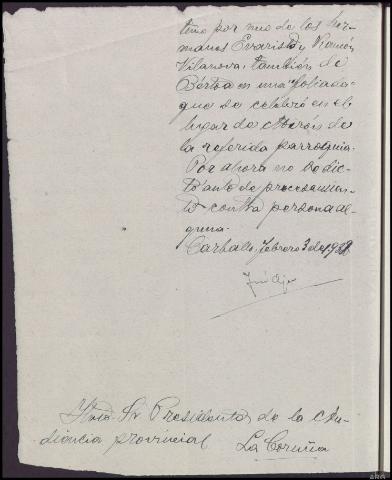 tivo por uno de los her-
manos Evaristo y Ramón
Vilanova, también de
Bértoa en una foliada
que se celebró en el
lugar de de
la referida parroquia.
Por ahora no se dic-
tó auto de procesamien-
to contra persona al-
guna.
Carballo, Febrero 3 de 1938
Ilmo. Sr. Presidente de la Au-
diencia provincial La Coruña